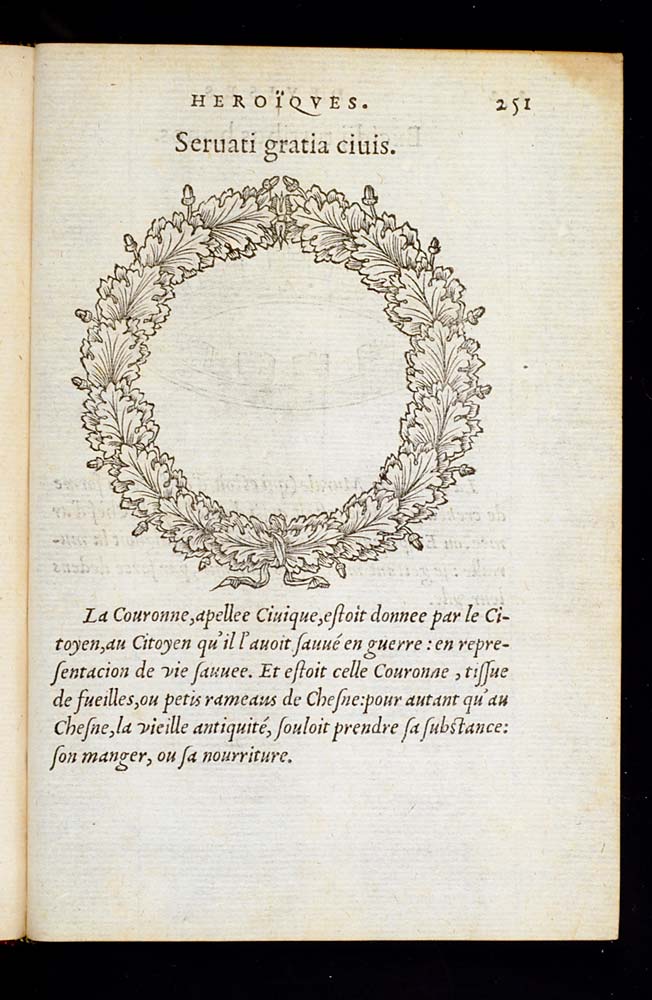 HEROÏQVES. 251
Seruati gratia ciuis.
La Couronne, apellee Ciuique, eſtoit donnee par le Ci-
toyen, au Citoyen qu'il l'auoit ſauué en guerre: en repre-
ſentacion de vie ſauuee. Et eſtoit celle Couronne, tiſſue
de fueilles, ou petis rameaus de Cheſne: pour autant qu'au
Cheſne, la vieille antiquité, ſouloit prendre ſa ſubſtance:
ſon manger, ou ſa nourriture.